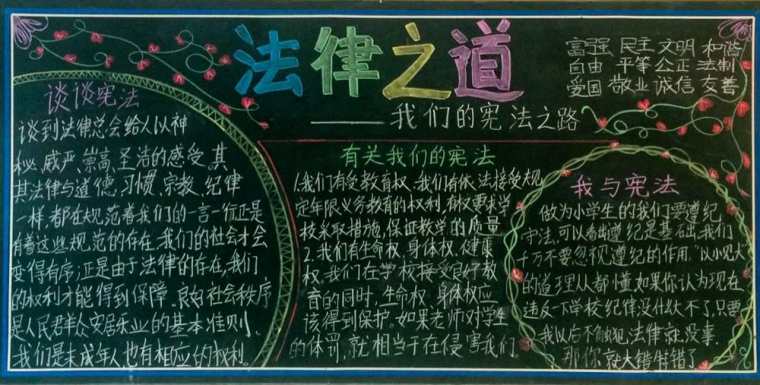 法律之道
——我们的宪法之路
富强 民主 文明 和谐
自由 平等 公正 法制
爱国 敬业 诚信 友善
谈谈宪法
谈到法律总会给人以神
秘、威严、崇高、圣洁的感受。其
其法律与道德、习惯、宗教、纪律
一样,都在规范着我们的一言一行正是
有着这些规范的存在,我们的社会才会
变得有序;正是由于法律的存在,我们
的权利才能得到保障。良好社会秩序
是人民群众安居乐业的基本准则。
我们是未成年人也有相应的权利。
有关我们的宪法
1.我们有受教育权。我们有依法接受规
定年限义务教育的权利,有权要求学
校采取措施,保证教学的质量
2.我们有生命权、身体权、健康
权。我们在学校接受良好教
育的同时,生命权、身体权应
该得到保护。如果老师对学生
的体罚,就相当于在侵害我们
我与宪法
做为小学生的我们要遵纪
守法,可以看出遵纪是基础,我们
千万不要忽视遵纪的作用。“以小见大
的道理从都懂如果你认为现在
违反一下学校纪律没什么大不了,只要
我以后不触犯法律就没事,
那你就大错特错了